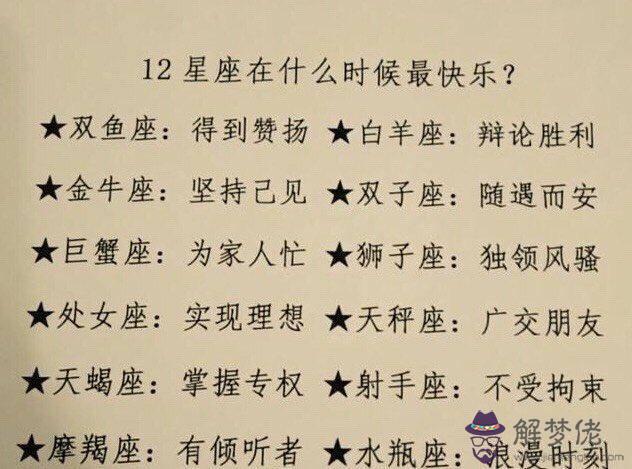 12星座在什么时候最快乐？
★双鱼座：得到赞扬 ★白羊座：辩论胜利
★金牛座：坚持己见 ★双子座：随遇而安
★巨蟹座：为家人忙 ★狮子座：独领风骚
★处女座：实现理想 ★天秤座：广交朋友
★天蝎座：掌握专权 ★射手座：不受拘束
★摩羯座：有倾听者 ★水瓶座：浪漫计划
解梦佬